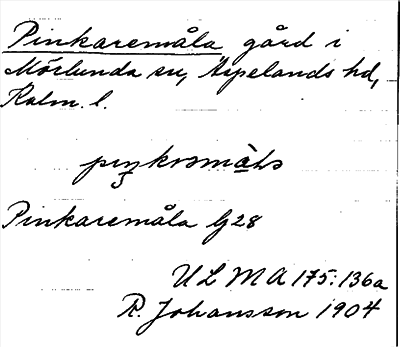 Pinkaremåla gård i
Mörlunda sn, Aspelands hd,
Kalm. l.
Pinkaremåla G28
ULMA 175:136a
R. Johansson 1904